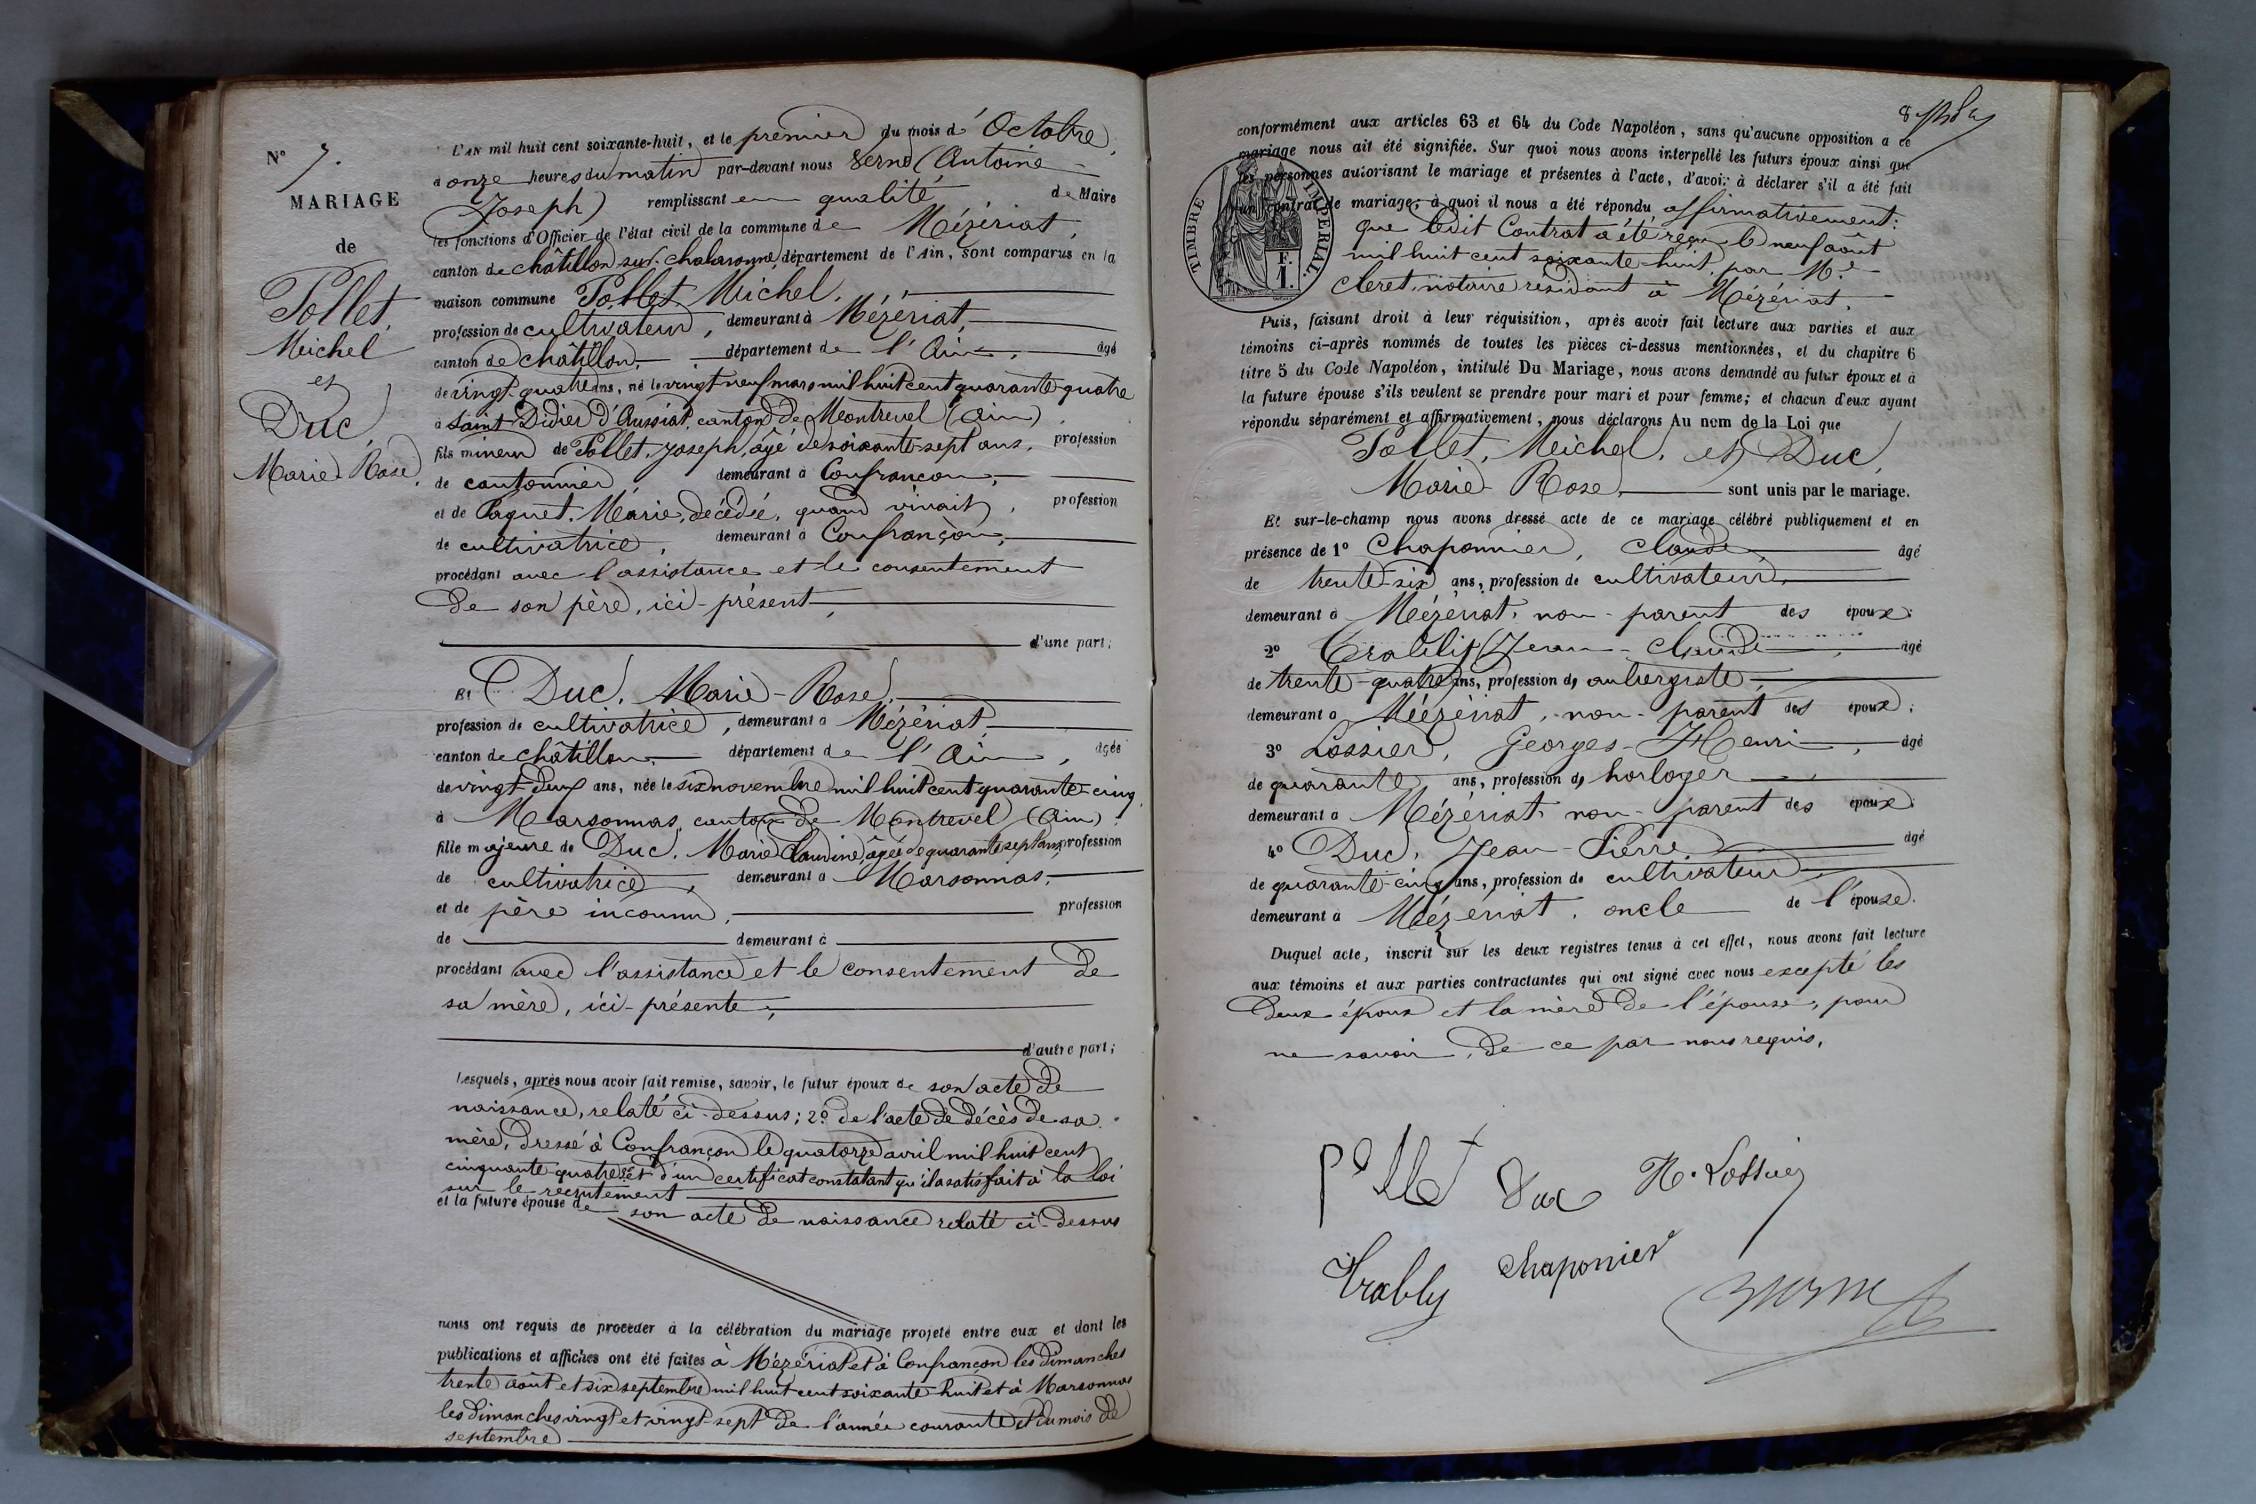 N° 7.
MARIAGE
de
Pollet,
Michel
et
Duc,
Marie Rose.
L'AN mil huit cent soixante-huit, et le premier du mois d' Octobre,
à onze heures du matin par-devant nous Verne (Antoine
Joseph) remplissant en qualité de Maire
les fonctions d'Officier de l'état civil de la commune de Mézériat,
canton de châtillon sur chalaronne, département de l'Ain, sont comparus en la
maison commune Pollet, Michel,
profession de cultivateur, demeurant à Mézériat,
canton de châtillon, département de l'Ain, âgé
de vingt-quatre ans, né le vingt-neuf mars mil huit cent quarante-quatre
à Saint Didier d'Aussiat, canton de Montrevel (Ain)
fils mineur de Pollet, Joseph, âgé de soixante-sept ans, profession
de cantonnier, demeurant à Confrançon,
et de Paquet, Marie, décédée, quand vivait, profession
de cultivatrice, demeurant à Confrançon,
procédant avec l'assistance et le consentement
de son père, ici-présent,
d'une part;
Et Duc, Marie-Rose,
profession de cultivatrice, demeurant à Mézériat,
canton de châtillon, département de l'Ain, âgée
de vingt-deux ans, née le six novembre mil huit cent quarante-cinq
à Marsonnas, canton de Montrevel (Ain)
fille majeure de Duc, Marie Claudine, âgée de quarante sept ans, profession
de cultivatrice, demeurant à Marsonnas,
et de père inconnu, profession
de demeurant à
procédant avec l'assistance et le consentement de
sa mère, ici-présente,
d'autre part;
Lesquels, après nous avoir fait remise, savoir, le futur époux de son acte de
naissance, relaté ci-dessus; 2° de l'acte de décès de sa
mère, dressé à Confrançon le quatorze avril mil huit cent
cinquante-quatre 3° et d'un certificat constatant qu'il a satisfait à la loi
sur le recrutement
et la future épouse de son acte de naissance relaté ci-dessus
nous ont requis de procéder à la célébration du mariage projeté entre eux et dont les
publications et affiches ont été faites à Mézériat et à Confrançon les dimanches
trente août et six septembre mil huit cent soixante-huit et à Marsonnas
les dimanches vingt et vingt-sept de l'année courante et du mois de
septembre
conformément aux articles 63 et 64 du Code Napoléon, sans qu'aucune opposition a ce
mariage nous ait été signifiée. Sur quoi nous avons interpellé les futurs époux ainsi que
les personnes autorisant le mariage et présentes à l'acte, d'avoir à déclarer s'il a été fait
un contrat de mariage; à quoi il nous a été répondu affirmativement:
que ledit Contrat a été reçu le neuf août
mil huit cent soixante-huit, par Me.
Cleret, notaire résidant à Mézériat,
TIMBRE IMPÉRIAL.
F.
1.
Puis, faisant droit à leur réquisition, après avoir fait lecture aux parties et aux
témoins ci-après nommés de toutes les pièces ci-dessus mentionnées, et du chapitre 6
titre 5 du Code Napoléon, intitulé Du Mariage, nous avons demandé au futur époux et à
la future épouse s'ils veulent se prendre pour mari et pour femme; et chacun d'eux ayant
répondu séparément et affirmativement, nous déclarons Au nom de la Loi que
Pollet, Michel, et Duc,
Marie-Rose, sont unis par le mariage.
Et sur-le-champ nous avons dressé acte de ce mariage célébré publiquement et en
présence de 1° Chaponnier, Claude, âgé
de trente-six ans, profession de cultivateur,
demeurant à Mézériat, non-parent des époux.
2° Trablit, Jean-Claude, âgé
de trente-quatre ans, profession de aubergiste,
demeurant à Mézériat, non-parent des époux;
3° Lossier, Georges-Henri, âgé
de quarante ans, profession de horloger,
demeurant à Mézériat, non-parent des époux.
4° Duc, Jean-Pierre âgé
de quarante-cinq ans, profession de cultivateur,
demeurant à Mézériat, oncle de l'épouse.
Duquel acte, inscrit sur les deux registres tenus à cet effet, nous avons fait lecture
aux témoins et aux parties contractantes qui ont signé avec nous excepté les
deux époux et la mère de l'épouse, pour
ne savoir, de ce par nous requis.
Pollet Duc H. Lossier
Trably Chaponier
Verne